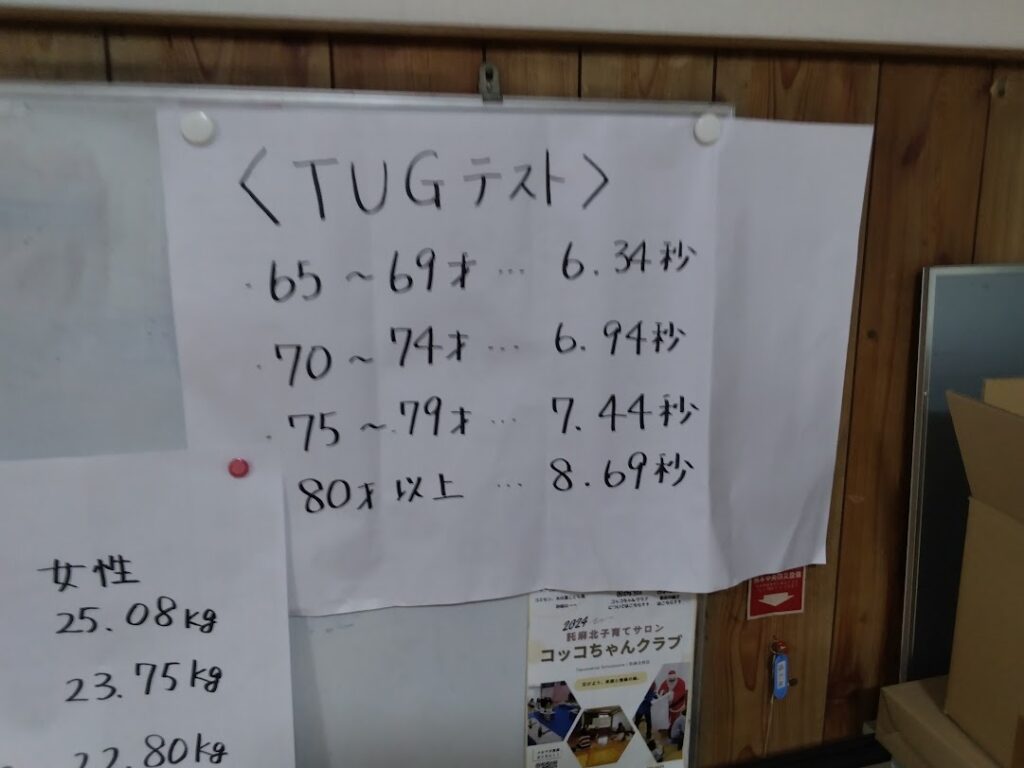 〈TUGテスト〉
・65～69才 … 6.34秒
・70～74才 … 6.94秒
・75～79才 … 7.44秒
80才以上 … 8.69秒
女性
25.08kg
23.75kg
22.80kg
2024
託麻北子育てサロン
コッコちゃんクラブ